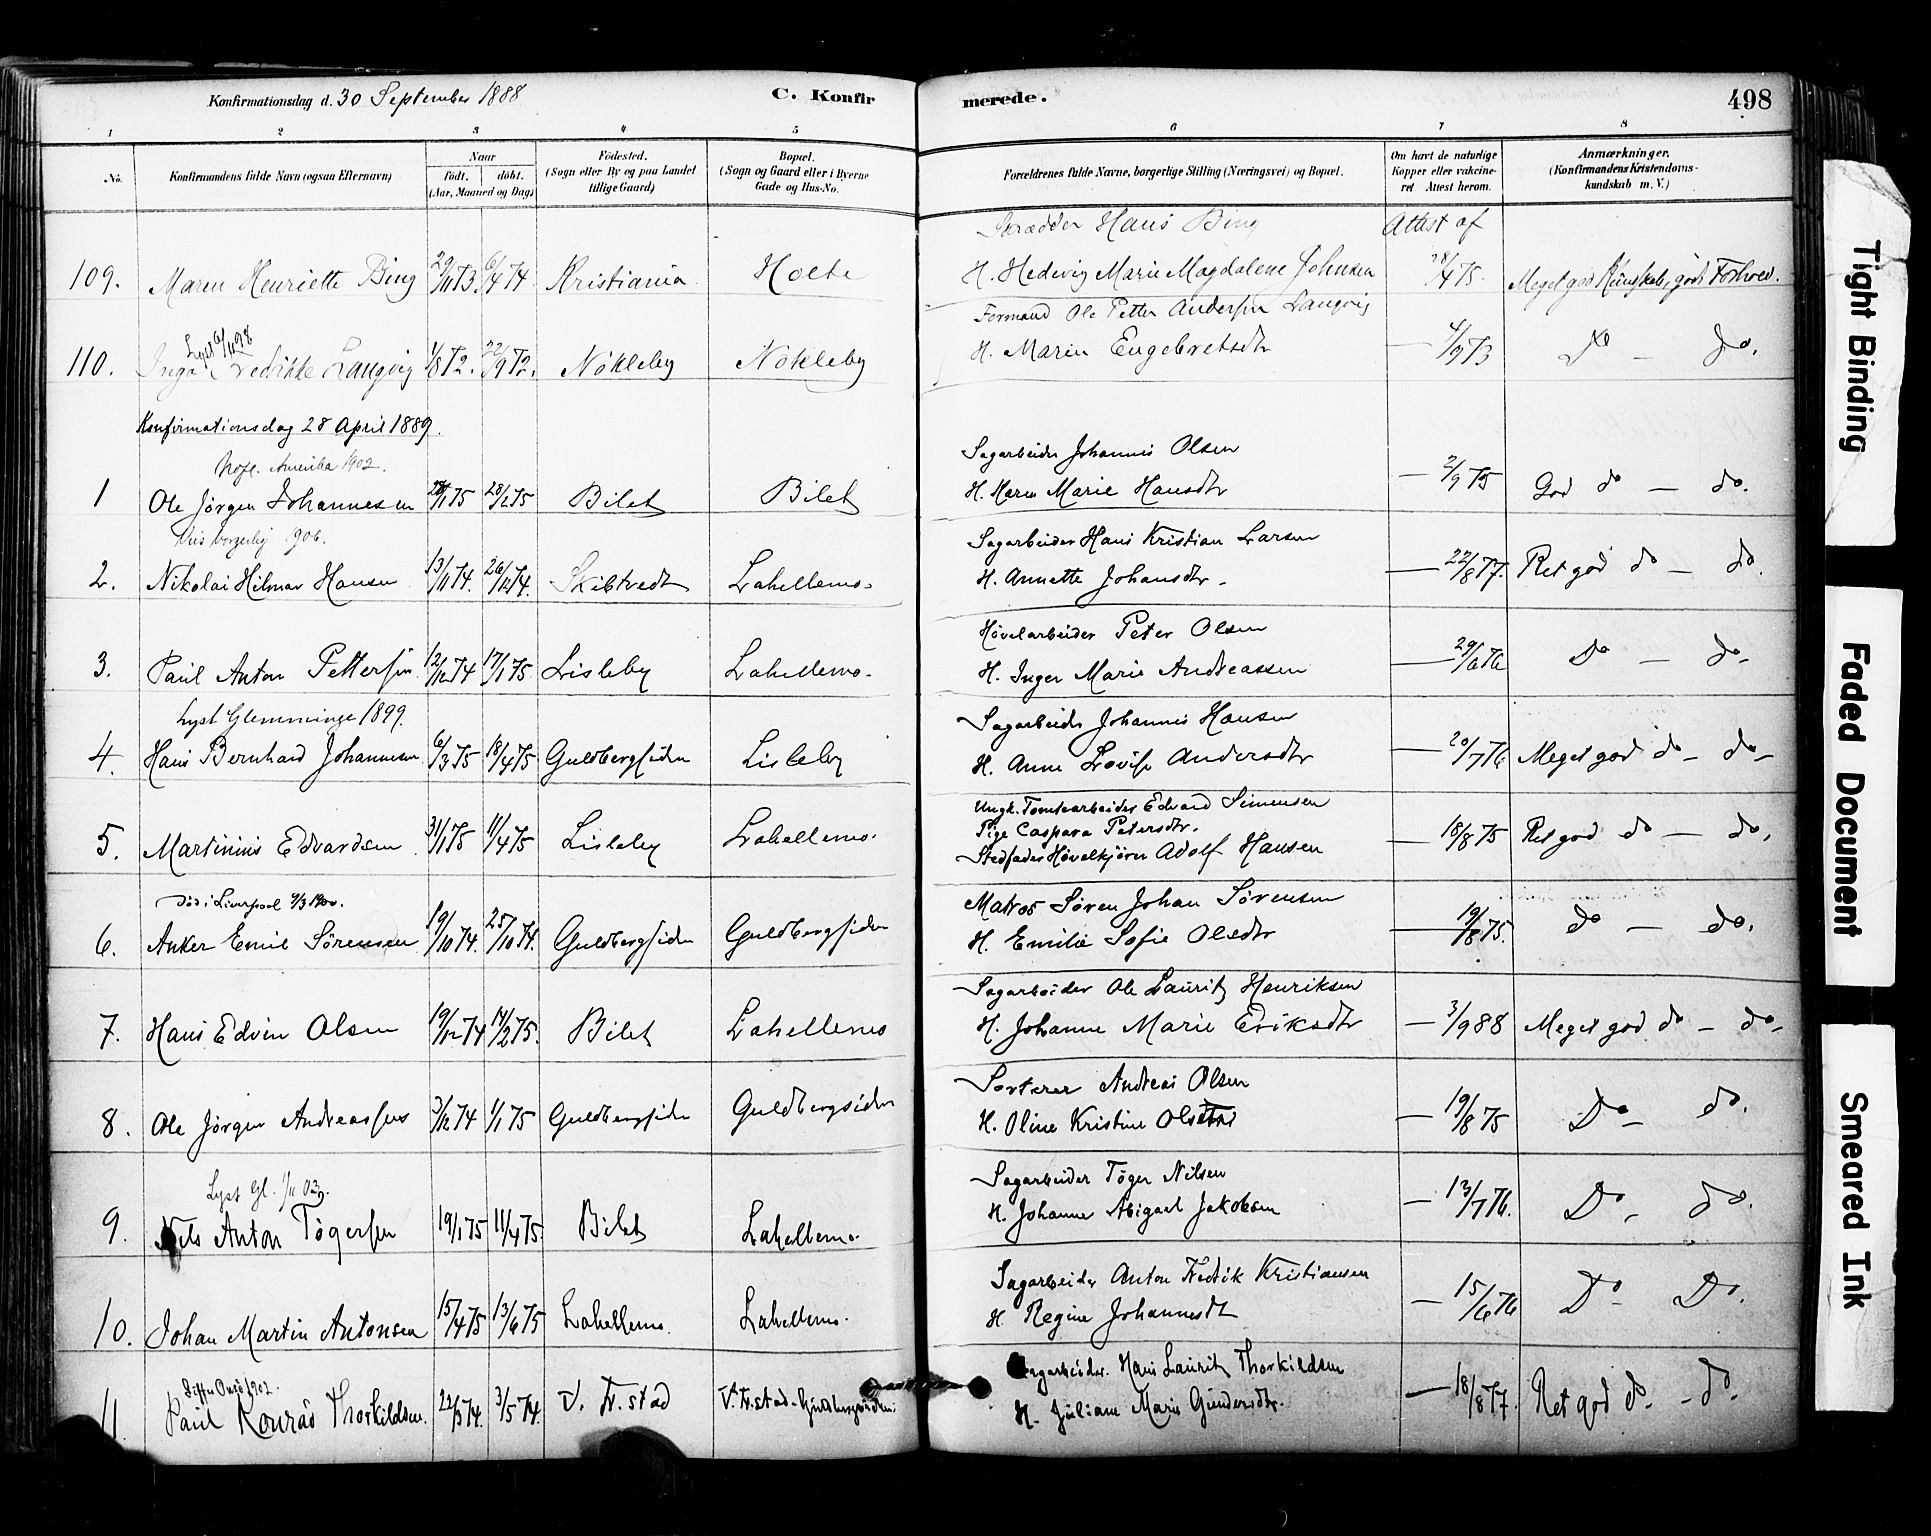 Konfirmationsdag d. 30 September 1888
C. Konfir
merede.
498
1 2 3 4 5 6 7 8
No.
Konfirmandens fulde Navn (ogsaa Efternavn)
Naar
födt. döbt.
(Aar, Maaned og Dag)
Födested.
(Sogn eller By og paa Landet
tillige Gaard)
Bopæl.
(Sogn og Gaard eller i Byerne
Gade og Hus-No.
Forældrenes fulde Navne, borgerlige Stilling (Næringsvei) og Bopæl.
Om havt de naturlige
Kopper eller vakcine-
ret Attest herom.
Anmærkninger.
(Konfirmandens Kristendoms-
kundskab m. V.)
Skrædder Hans Bing Attest af
109. Maren Henriette Bing 29/11 73 6/4 74. Kristiania Holte H. Hedevig Marie Magdalene Johnsen 28/4 75. Meget god Kundskab, godt Forhold.
Lyst 6/11 98 Formand Ole Petter Andersen Langvig
110. Inga Fredrikke Langvig 1/8 72. 22/9 72. Nökleby Nökleby H. Maren Engebretsdtr — 4/9 73 Do — Do.
Konfirmationsdag 28 April 1889.
Amerika 1902. Sagarbeider Johannes Olsen
1 Ole Jörgen Johannesen 28/2 75 Bilet Bilet H. Maren Marie Hansdtr — 2/9 75 God do — do.
borgerlig 1906. Sagarbeider Hans Kristian Larsen
2. Nikolai Hilmar Hansen 13/11 74. 26/12 74. Skibtvedt Lahellemo. H. Annette Johansdtr. — 22/8 77. Ret god do — do.
Hövelarbeider Peter Olsen
3. Paul Anton Pettersen 12/12 74 17/1 75. Lisleby Lahellemo. H. Inger Marie Andreassen — 29/6 76 Do — do.
Lyst Glemminge 1899. Sagarbeider Johannes Hansen
4. Hans Bernhard Johannesen 6/3 75 18/4 75 Guldbergsiden Lisleby H. Anne Lovise Andersdtr — 20/7 76 Meget god do — do —
Ungk. Tomtearbeider Edvard Simensen
Pige Caspara Petersdtr.
5. Martinius Edvardsen 31/1 75 11/4 75 Lisleby Lahellemo. Stedfader Hövelkjörer Adolf Hansen — 18/8 75 Ret god do — do.
Död i Liverpool 9/3 1900. Matros Sören Johan Sörensen
6. Anker Emil Sörensen 19/10 74. 25/10 74. Guldbergsiden Guldbergsiden H. Emilie Sofie Olsdtr — 19/8 75. do — do.
Sagarbeider Ole Lauritz Henriksen
7. Hans Edvin Olsen 19/12 74 14/2 75. Bilet Lahellemo H. Johanne Marie Eriksdtr — 3/9 88 Meget god do — do —
Sorterer Andreas Olsen
8. Ole Jörgen Andreassen 3/12 74 1/1 75 Guldbergsiden Guldbergsiden H. Oline Kristine Olsdtr — 19/8 75 Do — do.
Lyst Gl. 1/11 03. Sagarbeider Töger Nilsen
9. Nils Anton Tögersen 19/1 75 11/4 75. Bilet Lahellemo. H. Johanne Abigael Jakobsen — 13/7 76. Do — do.
Sagarbeider Anton Fredrik Kristiansen
10. Johan Martin Antonsen 15/4 75 13/6 75 Lahellemo. Lahellemo. H. Regine Johannesdt — 15/6 76 Do — Do.
Onsö 1902. Sagarbeider. Hans Lauritz Thorkildsen
11 Paul Konrad Thorkildsen. 22/3 74. 3/5 74. V. Fr. stad V. Fr. stad - Guldbergsiden. H. Juliane Marie Gundersdtr. — 18/8 77. Ret god do. — do.
Tight Binding
Faded Document
Smeared Ink